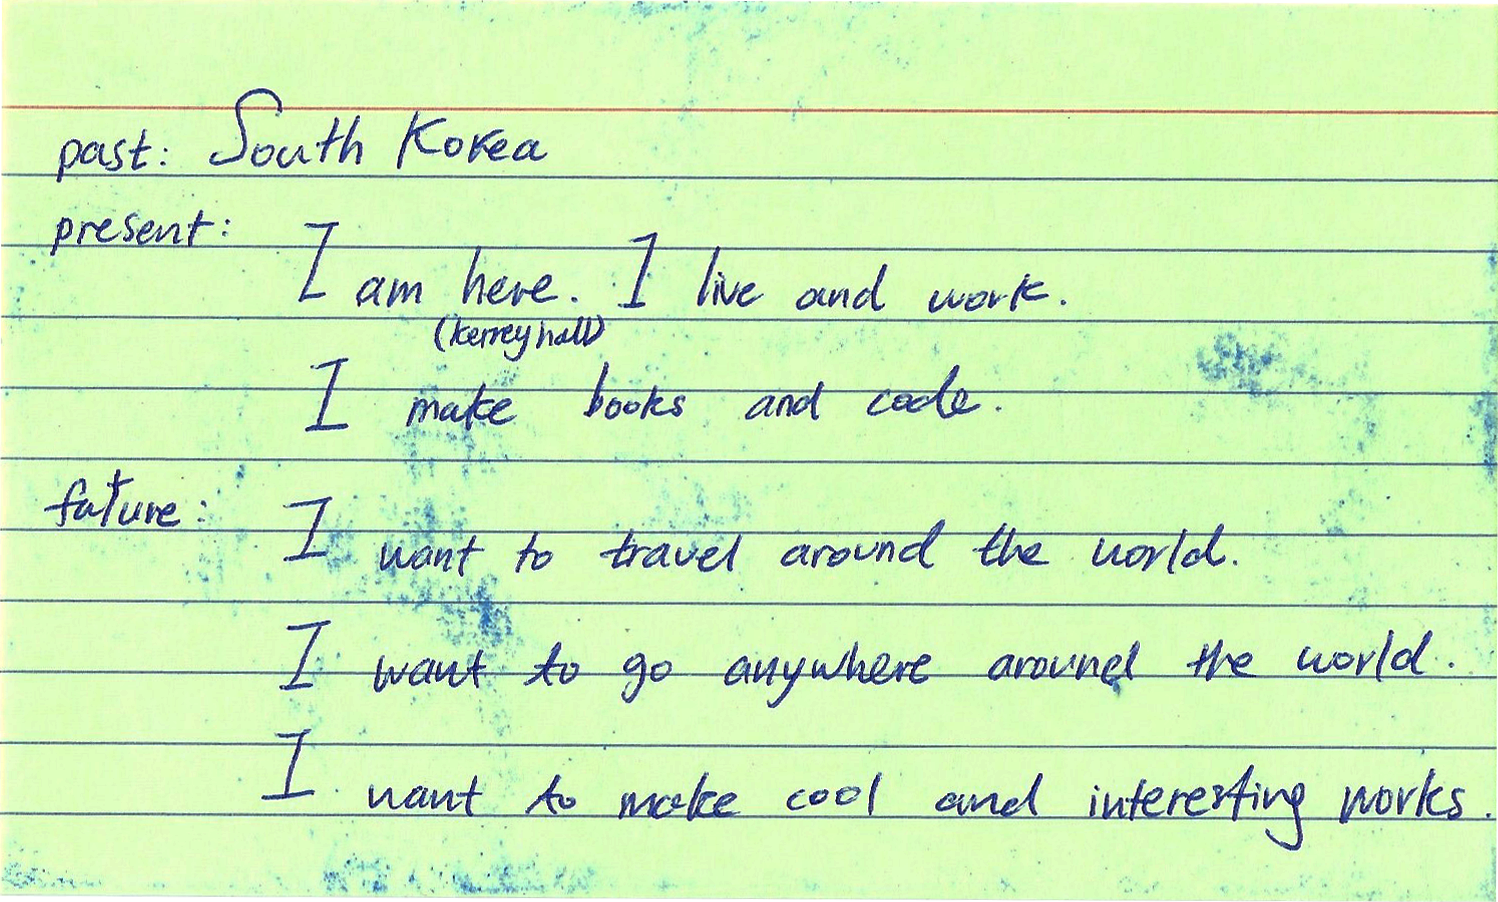 past: South Korea
present:
I am here. I live and work.
(kerrey hall)
I make books and code.
future:
I want to travel around the world.
I want to go anywhere around the world.
I want to make cool and interesting works.